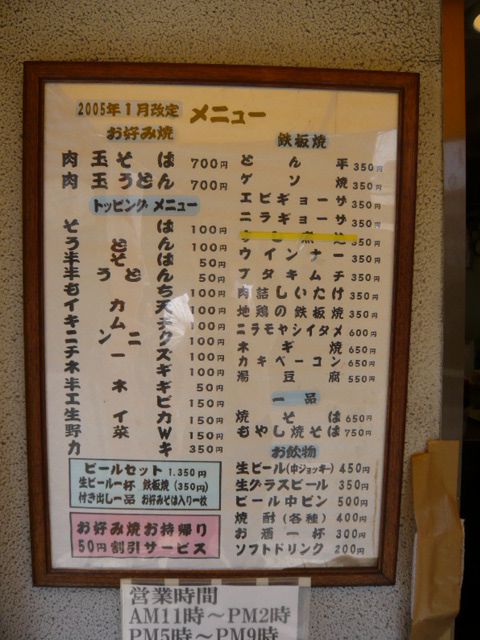 2005年1月改定 メニュー
お好み焼
肉玉そば 700円
肉玉うどん 700円
トッピングメニュー
そば 100円
うどん 100円
半そば 50円
半うどん 50円
もち 100円
イカ天 100円
キムチ 100円
ニンニク 100円
チーズ 100円
ネギ 100円
半ネギ 50円
エビ 150円
生イカ 150円
野菜W 150円
カキ 350円
ビールセット 1,350円
生ビール一杯 鉄板焼(350円)
付き出し一品 お好みそば入り一枚
お好み焼お持帰り
50円割引サービス
鉄板焼
とん平 350円
ゲソ焼 350円
エビギョーザ 350円
ニラギョーザ 350円
350円
ウインナー 350円
ブタキムチ 350円
肉詰しいたけ 350円
地鶏の鉄板焼 350円
ニラモヤシイタメ 600円
ネギ焼 650円
カキベーコン 650円
湯豆腐 550円
一品
焼そば 650円
もやし焼そば 750円
お飲物
生ビール(中ジョッキー) 450円
生グラスビール 350円
ビール中ビン 500円
焼酎(各種) 400円
お酒一杯 300円
ソフトドリンク 200円
営業時間
AM11時～PM2時
PM5時～PM9時